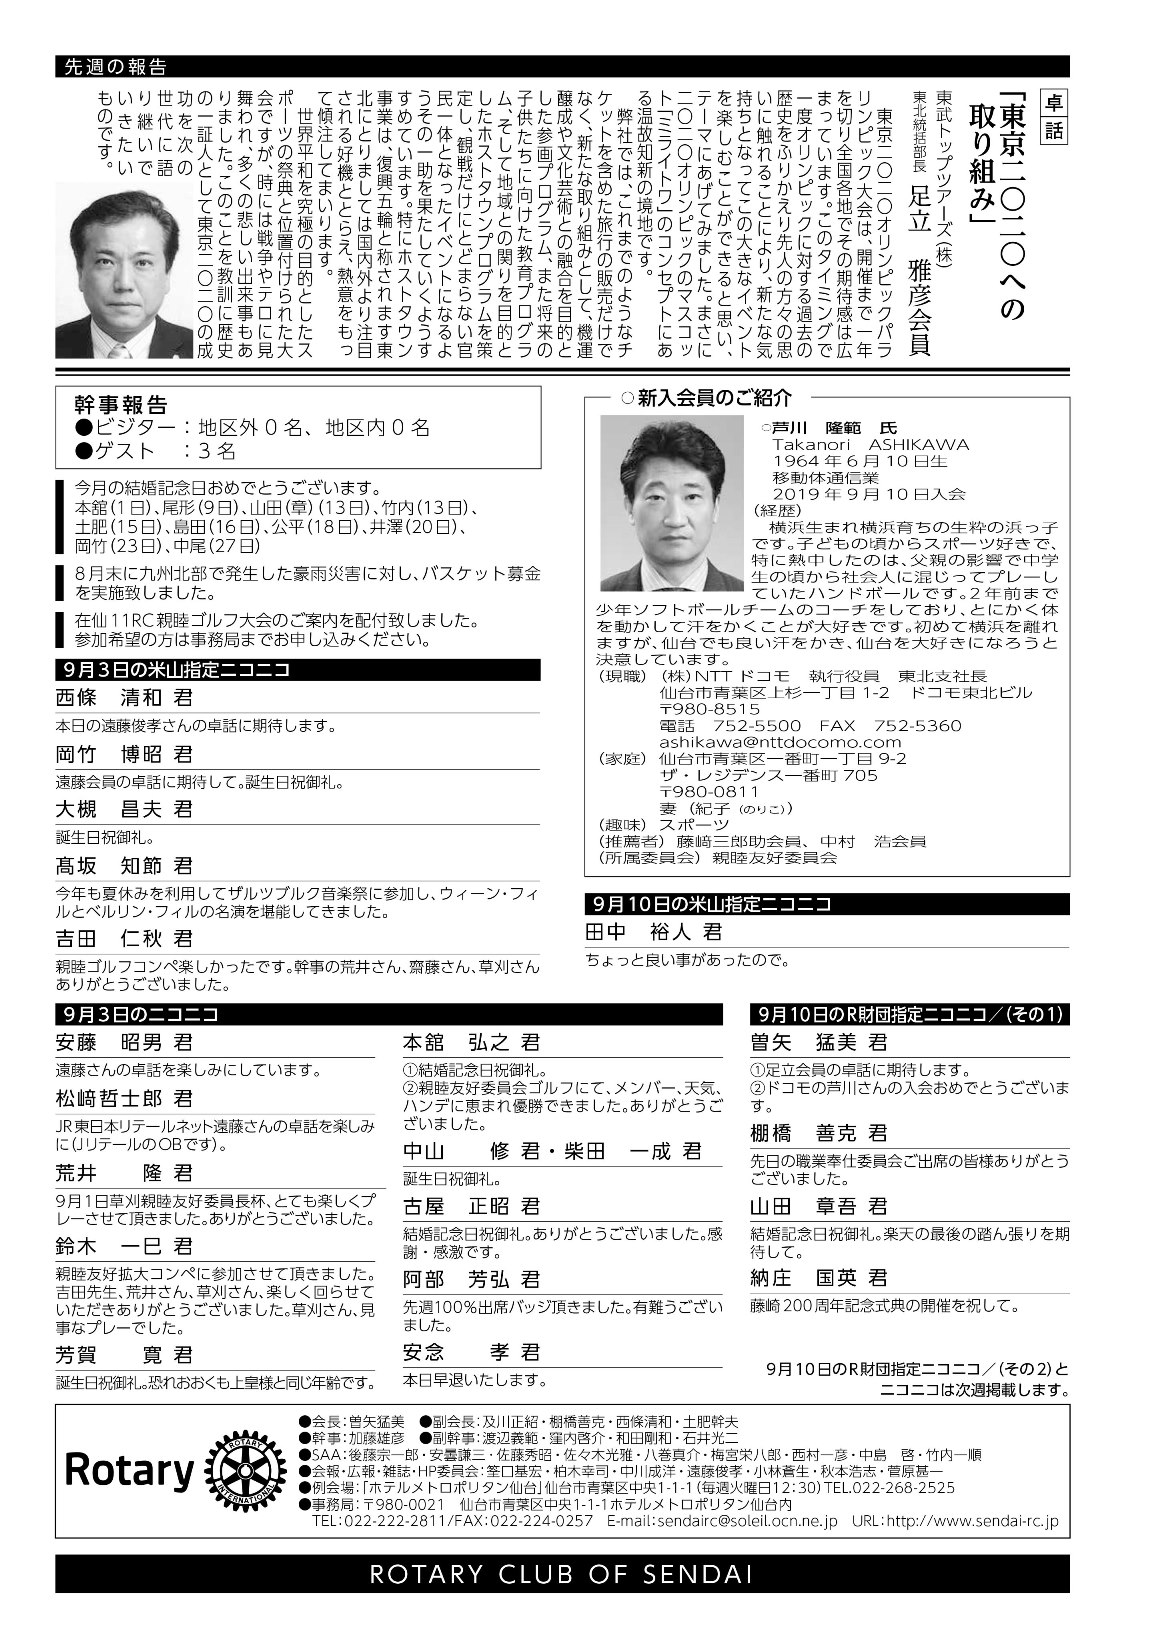 先週の報告
卓話
「東京二〇二〇への
取り組み」
東武トップツアーズ(株)
東北統括部長 足立 雅彦会員
東京二〇二〇オリンピックパラ
リンピック大会は、開催まで一年
を切り全国各地でその期待感は広
まっています。このタイミングで
一度オリンピックに対する過去の
歴史をふりかえり先人の方々の思
いに触れることにより、新たな気
持ちとなってこの大きなイベント
を楽しむことができると思い、
テーマにあげてみました。まさに
二〇二〇オリンピックのマスコッ
ト「ミライトワ」のコンセプトにあ
る温故知新の境地です。
弊社では、これまでのようなチ
ケットを含めた旅行の販売だけで
なく、新たな取り組みとして、機運
醸成や文化芸術との融合を目的と
した参画プログラム、また将来の
子供たちに向けた教育プログラ
ム、そして地域との関りを目的と
したホストタウンプログラムを策
定し、観戦だけにとどまらない官
民一体となったイベントになるよ
うその一助を果たしていくようす
すめています。特にホストタウン
事業は、復興五輪と称されます東
北にとりましては国内外より注目
される好機ととらえ、熱意をもっ
て傾注してまいります。
世界平和を究極の目的としたス
ポーツの祭典と位置付けられた大
会ですが、時には戦争やテロに見
舞われ、多くの悲しい出来事もあ
りました。このことを教訓に歴史
の一証人として東京二〇二〇の成
功を次の
世代に語
り継いで
いきたい
ものです。
幹事報告
●ビジター：地区外0名、地区内0名
●ゲスト　：3名
今月の結婚記念日おめでとうございます。
本舘(1日)、尾形(9日)、山田(章)(13日)、竹内(13日)、
土肥(15日)、島田(16日)、公平(18日)、井澤(20日)、
岡竹(23日)、中尾(27日)
8月末に九州北部で発生した豪雨災害に対し、バスケット募金
を実施致しました。
在仙11RC親睦ゴルフ大会のご案内を配付致しました。
参加希望の方は事務局までお申し込みください。
9月3日の米山指定ニコニコ
西條　清和 君
本日の遠藤俊孝さんの卓話に期待します。
岡竹　博昭 君
遠藤会員の卓話に期待して。誕生日祝御礼。
大槻　昌夫 君
誕生日祝御礼。
髙坂　知節 君
今年も夏休みを利用してザルツブルク音楽祭に参加し、ウィーン・フィ
ルとベルリン・フィルの名演を堪能してきました。
吉田　仁秋 君
親睦ゴルフコンペ楽しかったです。幹事の荒井さん、齋藤さん、草刈さん
ありがとうございました。
○新入会員のご紹介
○芦川　隆範　氏
Takanori　ASHIKAWA
1964年6月10日生
移動体通信業
2019年9月10日入会
(経歴)
横浜生まれ横浜育ちの生粋の浜っ子
です。子どもの頃からスポーツ好きで、
特に熱中したのは、父親の影響で中学
生の頃から社会人に混じってプレーし
ていたハンドボールです。2年前まで
少年ソフトボールチームのコーチをしており、とにかく体
を動かして汗をかくことが大好きです。初めて横浜を離れ
ますが、仙台でも良い汗をかき、仙台を大好きになろうと
決意しています。
(現職)　(株)NTTドコモ　執行役員　東北支社長
仙台市青葉区上杉一丁目1-2　ドコモ東北ビル
〒980-8515
電話　752-5500　FAX　752-5360
ashikawa@nttdocomo.com
(家庭)　仙台市青葉区一番町一丁目9-2
ザ・レジデンス一番町705
〒980-0811
妻（紀子（のりこ））
(趣味)　スポーツ
(推薦者)　藤﨑三郎助会員、中村　浩会員
(所属委員会)　親睦友好委員会
9月10日の米山指定ニコニコ
田中　裕人 君
ちょっと良い事があったので。
9月3日のニコニコ
安藤　昭男 君
遠藤さんの卓話を楽しみにしています。
松﨑哲士郎 君
JR東日本リテールネット遠藤さんの卓話を楽しみ
に(JリテールのOBです)。
荒井　　隆 君
9月1日草刈親睦友好委員長杯、とても楽しくプ
レーさせて頂きました。ありがとうございました。
鈴木　一巳 君
親睦友好拡大コンペに参加させて頂きました。
吉田先生、荒井さん、草刈さん、楽しく回らせて
いただきありがとうございました。草刈さん、見
事なプレーでした。
芳賀　　寛 君
誕生日祝御礼。恐れおおくも上皇様と同じ年齢です。
本舘　弘之 君
①結婚記念日祝御礼。
②親睦友好委員会ゴルフにて、メンバー、天気、
ハンデに恵まれ優勝できました。ありがとうご
ざいました。
中山　　修 君・柴田　一成 君
誕生日祝御礼。
古屋　正昭 君
結婚記念日祝御礼。ありがとうございました。感
謝・感激です。
阿部　芳弘 君
先週100％出席バッジ頂きました。有難うござい
ました。
安念　　孝 君
本日早退いたします。
9月10日のR財団指定ニコニコ／(その1)
曽矢　猛美 君
①足立会員の卓話に期待します。
②ドコモの芦川さんの入会おめでとうございま
す。
棚橋　善克 君
先日の職業奉仕委員会ご出席の皆様ありがとう
ございました。
山田　章吾 君
結婚記念日祝御礼。楽天の最後の踏ん張りを期
待して。
納庄　国英 君
藤崎200周年記念式典の開催を祝して。
9月10日のR財団指定ニコニコ／(その2)と
ニコニコは次週掲載します。
Rotary
ROTARY INTERNATIONAL
●会長：曽矢猛美　●副会長：及川正紹・棚橋善克・西條清和・土肥幹夫
●幹事：加藤雄彦　●副幹事：渡辺義範・窪内啓介・和田剛和・石井光二
●SAA：後藤宗一郎・安曇謙三・佐藤秀昭・佐々木光雅・八巻真介・梅宮栄八郎・西村一彦・中島　啓・竹内一順
●会報・広報・雑誌・HP委員会：笠口基宏・柏木幸司・中川成洋・遠藤俊孝・小林蒼生・秋本浩志・菅原甚一
●例会場：「ホテルメトロポリタン仙台」仙台市青葉区中央1-1-1(毎週火曜日12：30)TEL.022-268-2525
●事務局：〒980-0021　仙台市青葉区中央1-1-1ホテルメトロポリタン仙台内
TEL：022-222-2811/FAX：022-224-0257　E-mail：sendairc@soleil.ocn.ne.jp　URL：http://www.sendai-rc.jp
ROTARY CLUB OF SENDAI